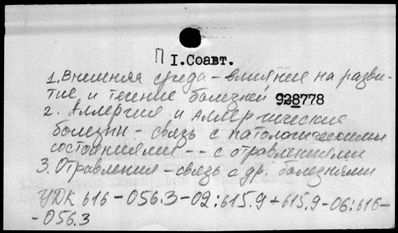 П I.Соавт.
1. Внешняя среда - влияние на разви-
тие и течение болезней 928778
2. Аллергия и Аллергические
болезни - связь с патологическими
состояниями -- с отравлениями
3. Отравления - связь с др. болезнями
УДК 616-056.3-02:615.9+615.9-06:616-
-056.3